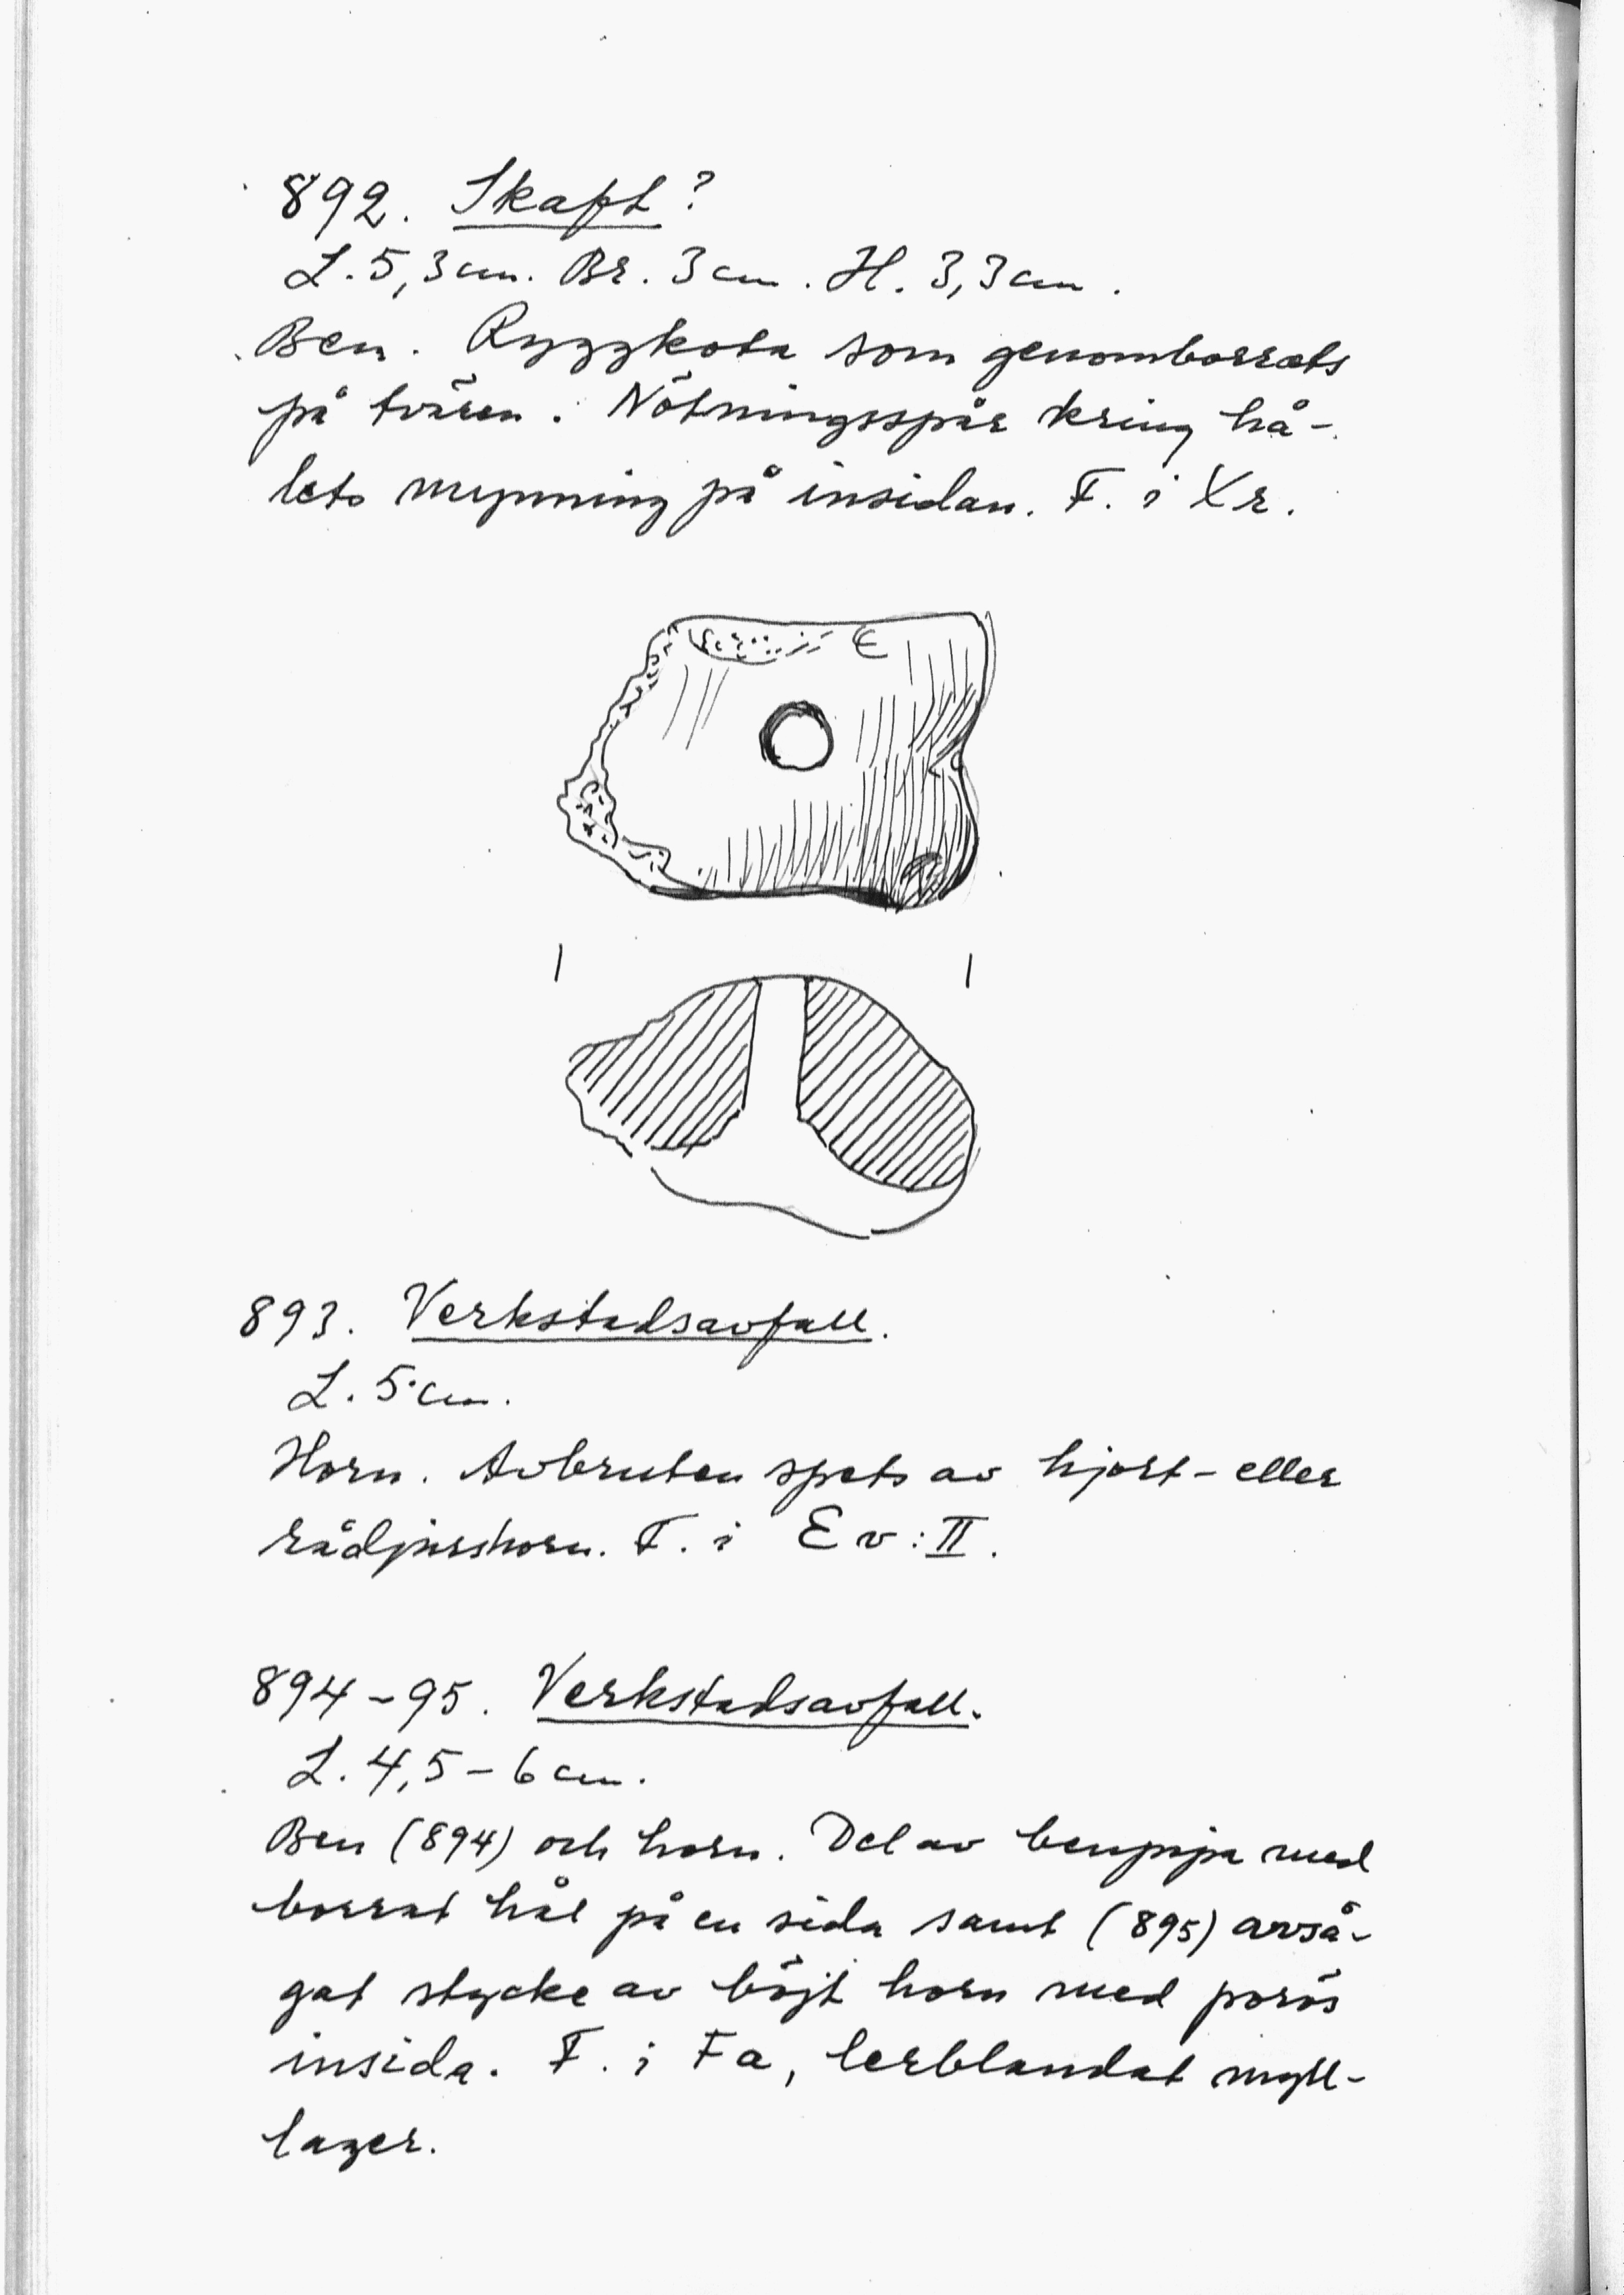 892. Skaft?
L. 5,3 cm. Br. 3 cm. H. 3,3 cm.
Ben. Ryggkota som genomborrats
på tvären. Nötningsspår kring hå-
lets mynning på insidan. F. i Xr.
893. Verkstadsavfall.
L. 5 cm.
Horn. Avbruten spets av hjort- eller
rådjurshorn. F. i Ev:II.
894-95. Verkstadsavfall.
L. 4,5-6 cm.
Ben (894) och horn. Del av benpipa med
borrat hål på en sida samt (895) avså-
gat stycke av böjt horn med porös
insida. F. i Fa, lerblandat myll-
lager.